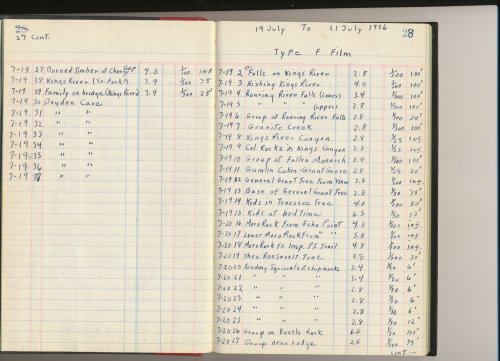 27 CONT.
7-19 27 Burned Timber at Cherry Gap 4.0 1/100 INF.
7-19 28 Kings River (So. Fork) 3.9 75'
7-19 29 Family on bridge (Kings River) 3.9 25'
7-19 30 Boyden Cave
7-19 31 " "
7-19 32 " "
7-19 33 " "
7-19 34 " "
7-19 35 " "
7-19 36 " "
7-19 37 " "
19 July To 21 July 1956
28
Type F Film
7-19 2 Falls on Kings River 2.8 1/200 100'
7-19 3 Fishing Kings River 4.0 100'
7-19 4 Roaring River Falls (Lower) 3.4 100'
7-19 5 " " " (Upper) 2.8 100'
7-19 6 Group at Roaring River Falls 2.8 20'
7-19 7 Granite Creek 2.8 100'
7-19 8 Kings River Canyon 2.8 1/25 inf.
7-19 9 Col. Rocks in Kings Canyon 2.8 1/25 inf.
7-19 10 Group at Fallen Monarch 2.8 100'
7-19 11 Gamlin Cabin-Grant Grove 2.8 1/25 20'
7-19 12 General Grant Tree From View 2.8 inf.
7-19 13 Base of General Grant Tree 2.8 1/50 75'
7-19 14 Kids in Tenessee Tree 4.0 50'
7-19 15 Kids at bed Time 6.3 1/50 13'
7-20 16 Moro Rock From Echo Point 4.8 1/100 inf.
7-20 17 Lower Moro Rock From " " 5.0 inf.
7-20 18 Moro Rock Fr. Insp. Pt. Trail 4.8 inf.
7-20 19 Theo. Roosevelt Tree 2.8 30'
7-20 20 Feeding Squirrels & Chipmonks 2.4 1/50 6'
7-20 21 " " " 3.4 1/50 6'
7-20 22 " " " 2.8 1/50 6'
7-20 23 " " " 2.8 1/50 6'
7-20 24 " " " 2.8 1/50 6'
7-20 25 " " " 2.8 1/50 12'
7-20 26 Group on Beetle Rock 6.8 1/50 100'
7-20 27 Group near Lodge 2.8 75'
CONT.—